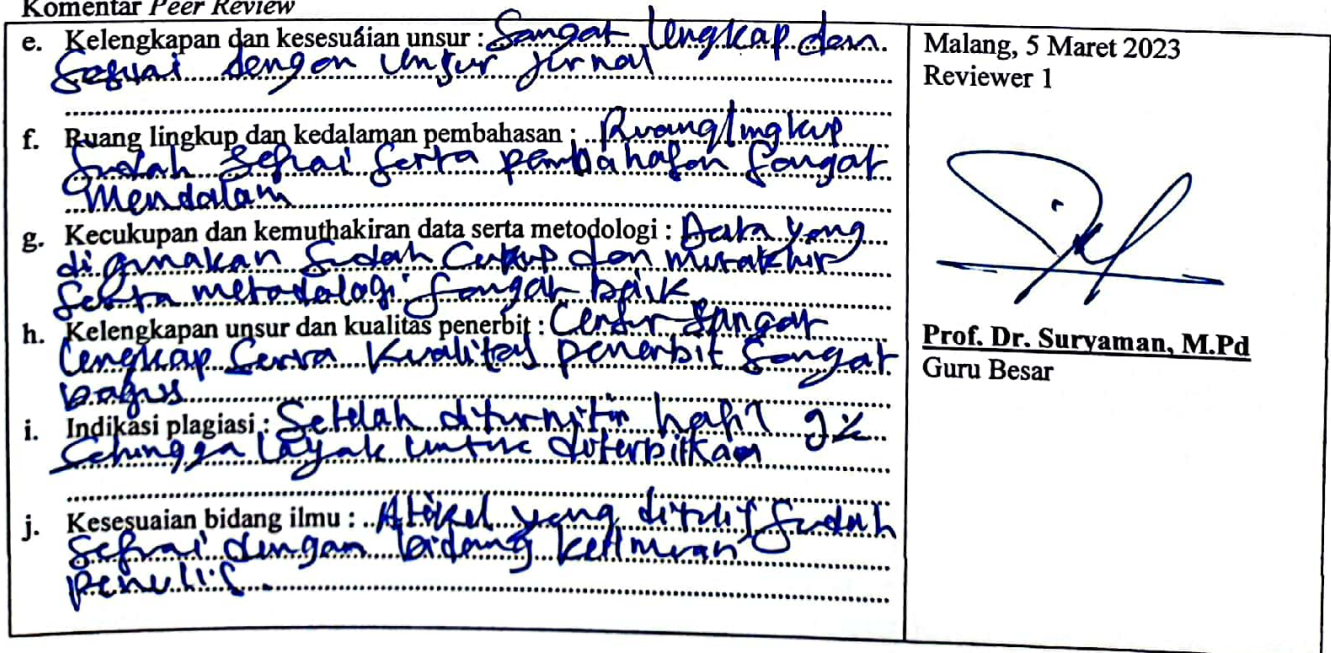 Komentar Peer Review
e. Kelengkapan dan kesesuaian unsur : Sangat lengkap dan
sesuai dengan unsur jurnal
f. Ruang lingkup dan kedalaman pembahasan : Ruang lingkup
sudah sesuai serta pembahasan sangat
mendalam
g. Kecukupan dan kemuthakiran data serta metodologi : Data yang
digunakan sudah cukup dan mutakhir
serta metodologi sangat baik
h. Kelengkapan unsur dan kualitas penerbit : Unsur sangat
lengkap serta kualitas penerbit sangat
bagus
i. Indikasi plagiasi : Setelah diturnitin hasil 9%
sehingga layak untuk diterbitkan
j. Kesesuaian bidang ilmu : Artikel yang ditulis sudah
sesuai dengan bidang keilmuan
penulis.
Malang, 5 Maret 2023
Reviewer 1
Prof. Dr. Suryaman, M.Pd
Guru Besar